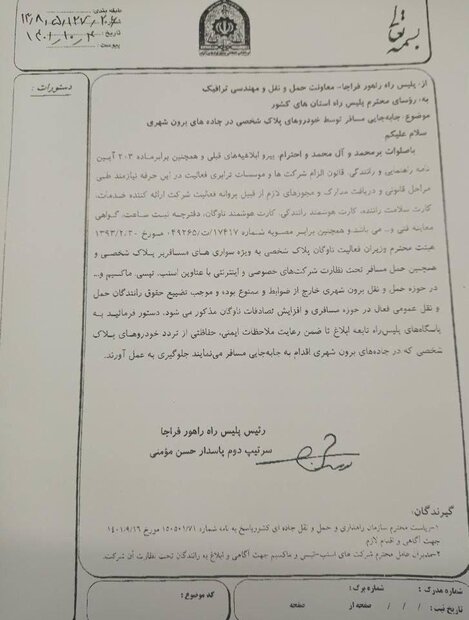 بسمه تعالی
طبقه بندی :
تاریخ : ۱۴۰۱/۱۰/۴
پیوست :
دستورات :
از: پلیس راه راهور فراجا- معاونت حمل و نقل و مهندسی ترافیک
به: رؤسای محترم پلیس راه استان های کشور
موضوع: جابه‌جایی مسافر توسط خودروهای پلاک شخصی در جاده های برون شهری
سلام علیکم
باصلوات برمحمد و آل محمد و احترام، پیرو ابلاغیه‌های قبلی و همچنین برابرماده ۲۰۳ آیین
نامه راهنمایی و رانندگی، قانون الزام شرکت ها و موسسات ترابری فعالیت در این حرفه نیازمند طی
مراحل قانونی و دریافت مدارک و مجوزهای لازم از قبیل پروانه فعالیت شرکت ارائه کننده خدمات،
کارت سلامت راننده، کارت هوشمند رانندگی، کارت هوشمند ناوگان، دفترچه ثبت ساعت، گواهی
معاینه فنی و... می باشد.و همچنین برابر مصوبه شماره ۱۷۴۱۷/ت۴۹۲۶۵ه مورخ ۱۳۹۳/۲/۳۰
هیئت محترم وزیران فعالیت ناوگان پلاک شخصی به ویژه سواری های مسافربر پلاک شخصی و
همچنین حمل مسافر تحت نظارت شرکت‌های خصوصی و اینترنتی با عناوین اسنپ، تپسی، ماکسیم و...
در حوزه حمل و نقل برون شهری خارج از ضوابط و ممنوع بوده و موجب تضییع حقوق رانندگان حمل
و نقل عمومی فعال در حوزه مسافری و افزایش تصادفات ناوگان مذکور می شود. دستور فرمائید به
پاسگاه‌های پلیس‌راه تابعه ابلاغ تا ضمن رعایت ملاحظات ایمنی، حفاظتی از تردد خودروهای پلاک
شخصی که در جاده‌های برون شهری اقدام به جابه‌جایی مسافر می‌نمایند جلوگیری به عمل آورند.
رئیس پلیس راه راهور فراجا
سرتیپ دوم پاسدار حسن مؤمنی
گیرندگان:
۱-ریاست محترم سازمان راهداری و حمل و نقل جاده ای کشورپاسخ به نامه شماره ۱۵۰۵۰۱/۷۱ مورخ ۱۴۰۱/۹/۱۶
جهت آگاهی و اقدام لازم.
۲-مدیران عامل محترم شرکت های اسنپ-تپسی و ماکسیم جهت آگاهی و ابلاغ به رانندگان تحت نظارت آن شرکت.
شماره مدرک : شماره برگ :
تاریخ ثبت : / / / صفحه از صفحه
کد موضوع :